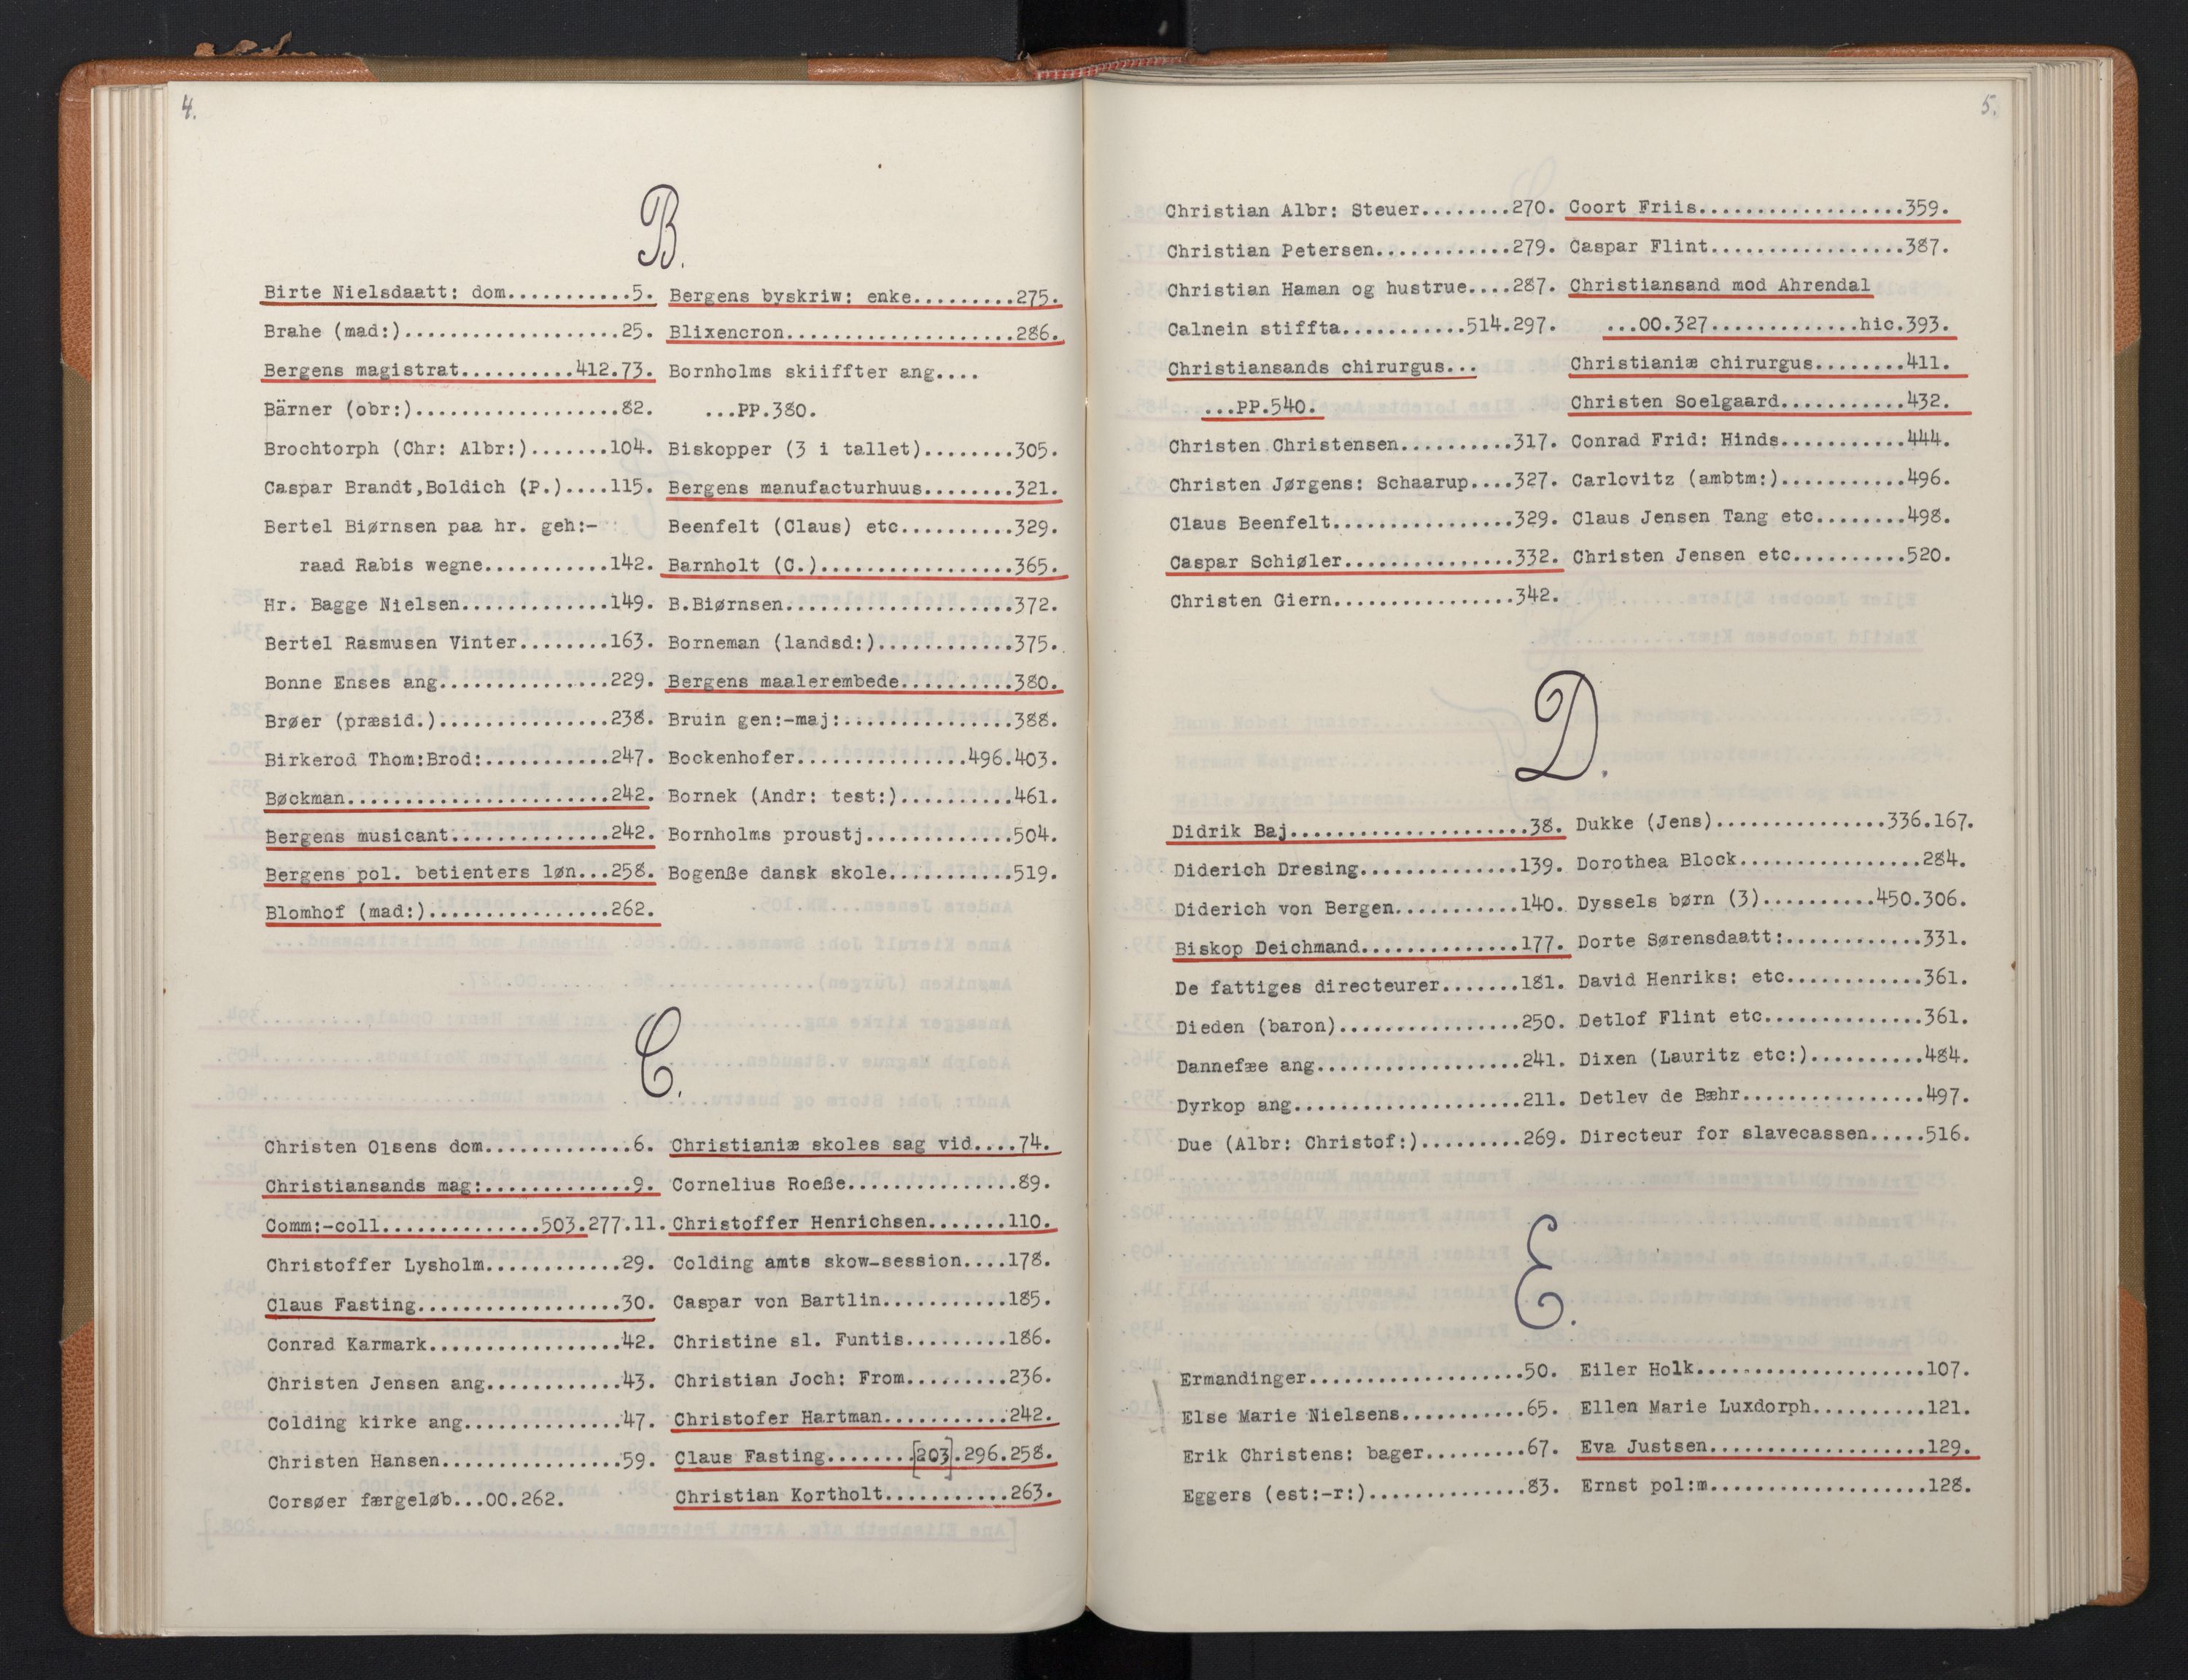 4.
B.
Birte Nielsdaatt: dom...........5.
Brahe (mad:)...................25.
Bergens magistrat..........412.73.
Bärner (obr:)..................82.
Brochtorph (Chr: Albr:).......104.
Caspar Brandt,Boldich (P.)....115.
Bertel Biørnsen paa hr. geh:-
raad Rabis wegne...........142.
Hr. Bagge Nielsen.............149.
Bertel Rasmusen Vinter........163.
Bonne Enses ang...............229.
Brøer (præsid.)...............238.
Birkerod Thom:Brod:...........247.
Bøckman.......................242.
Bergens musicant..............242.
Bergens pol. betienters løn...258.
Blomhof (mad:)................262.
Bergens byskriw: enke.........275.
Blixencron....................286.
Bornholms skiiffter ang....
...PP.380.
Biskopper (3 i tallet)........305.
Bergens manufacturhuus........321.
Beenfelt (Claus) etc..........329.
Barnholt (C.).................365.
B.Biørnsen....................372.
Borneman (landsd:)............375.
Bergens maalerembede..........380.
Bruin gen:-maj:...............388.
Bockenhofer...............496.403.
Bornek (Andr: test:)..........461.
Bornholms proustj.............504.
Bogenße dansk skole...........519.
C.
Christen Olsens dom.............6.
Christiansands mag:.............9.
Comm:-coll..............503.277.11.
Christoffer Lysholm............29.
Claus Fasting..................30.
Conrad Karmark.................42.
Christen Jensen ang............43.
Colding kirke ang..............47.
Christen Hansen................59.
Corsøer færgeløb...OO.262.
Christianiæ skoles sag vid....74.
Cornelius Roeße...............89.
Christoffer Henrichsen.......110.
Colding amts skow-session....178.
Caspar von Bartlin...........185.
Christine sl. Funtis.........186.
Christian Joch: From.........236.
Christofer Hartman...........242.
Claus Fasting........[203].296.258.
Christian Kortholt...........263.
5.
Christian Albr: Steuer........270.
Christian Petersen............279.
Christian Haman og hustrue....287.
Calnein stiffta...........514.297.
Christiansands chirurgus...
...PP.540.
Christen Christensen..........317.
Christen Jørgens: Schaarup....327.
Claus Beenfelt................329.
Caspar Schiøler...............332.
Christen Giern................342.
Coort Friis..................359.
Caspar Flint.................387.
Christiansand mod Ahrendal
...OO.327.............hic.393.
Christianiæ chirurgus........411.
Christen Soelgaard...........432.
Conrad Frid: Hinds...........444.
Carlovitz (ambtm:)...........496.
Claus Jensen Tang etc........498.
Christen Jensen etc..........520.
D.
Didrik Baj.....................38.
Diderich Dresing..............139.
Diderich von Bergen...........140.
Biskop Deichmand..............177.
De fattiges directeurer.......181.
Dieden (baron)................250.
Dannefæe ang..................241.
Dyrkop ang....................211.
Due (Albr: Christof:).........269.
Dukke (Jens)...............336.167.
Dorothea Block................284.
Dyssels børn (3)..........450.306.
Dorte Sørensdaatt:............331.
David Henriks: etc............361.
Detlof Flint etc..............361.
Dixen (Lauritz etc:)..........484.
Detlev de Bæhr................497.
Directeur for slavecassen.....516.
E.
Ermandinger...................50.
Else Marie Nielsens...........65.
Erik Christens: bager.........67.
Eggers (est:-r:)..............83.
Eiler Holk....................107.
Ellen Marie Luxdorph..........121.
Eva Justsen...................129.
Ernst pol:m...................128.